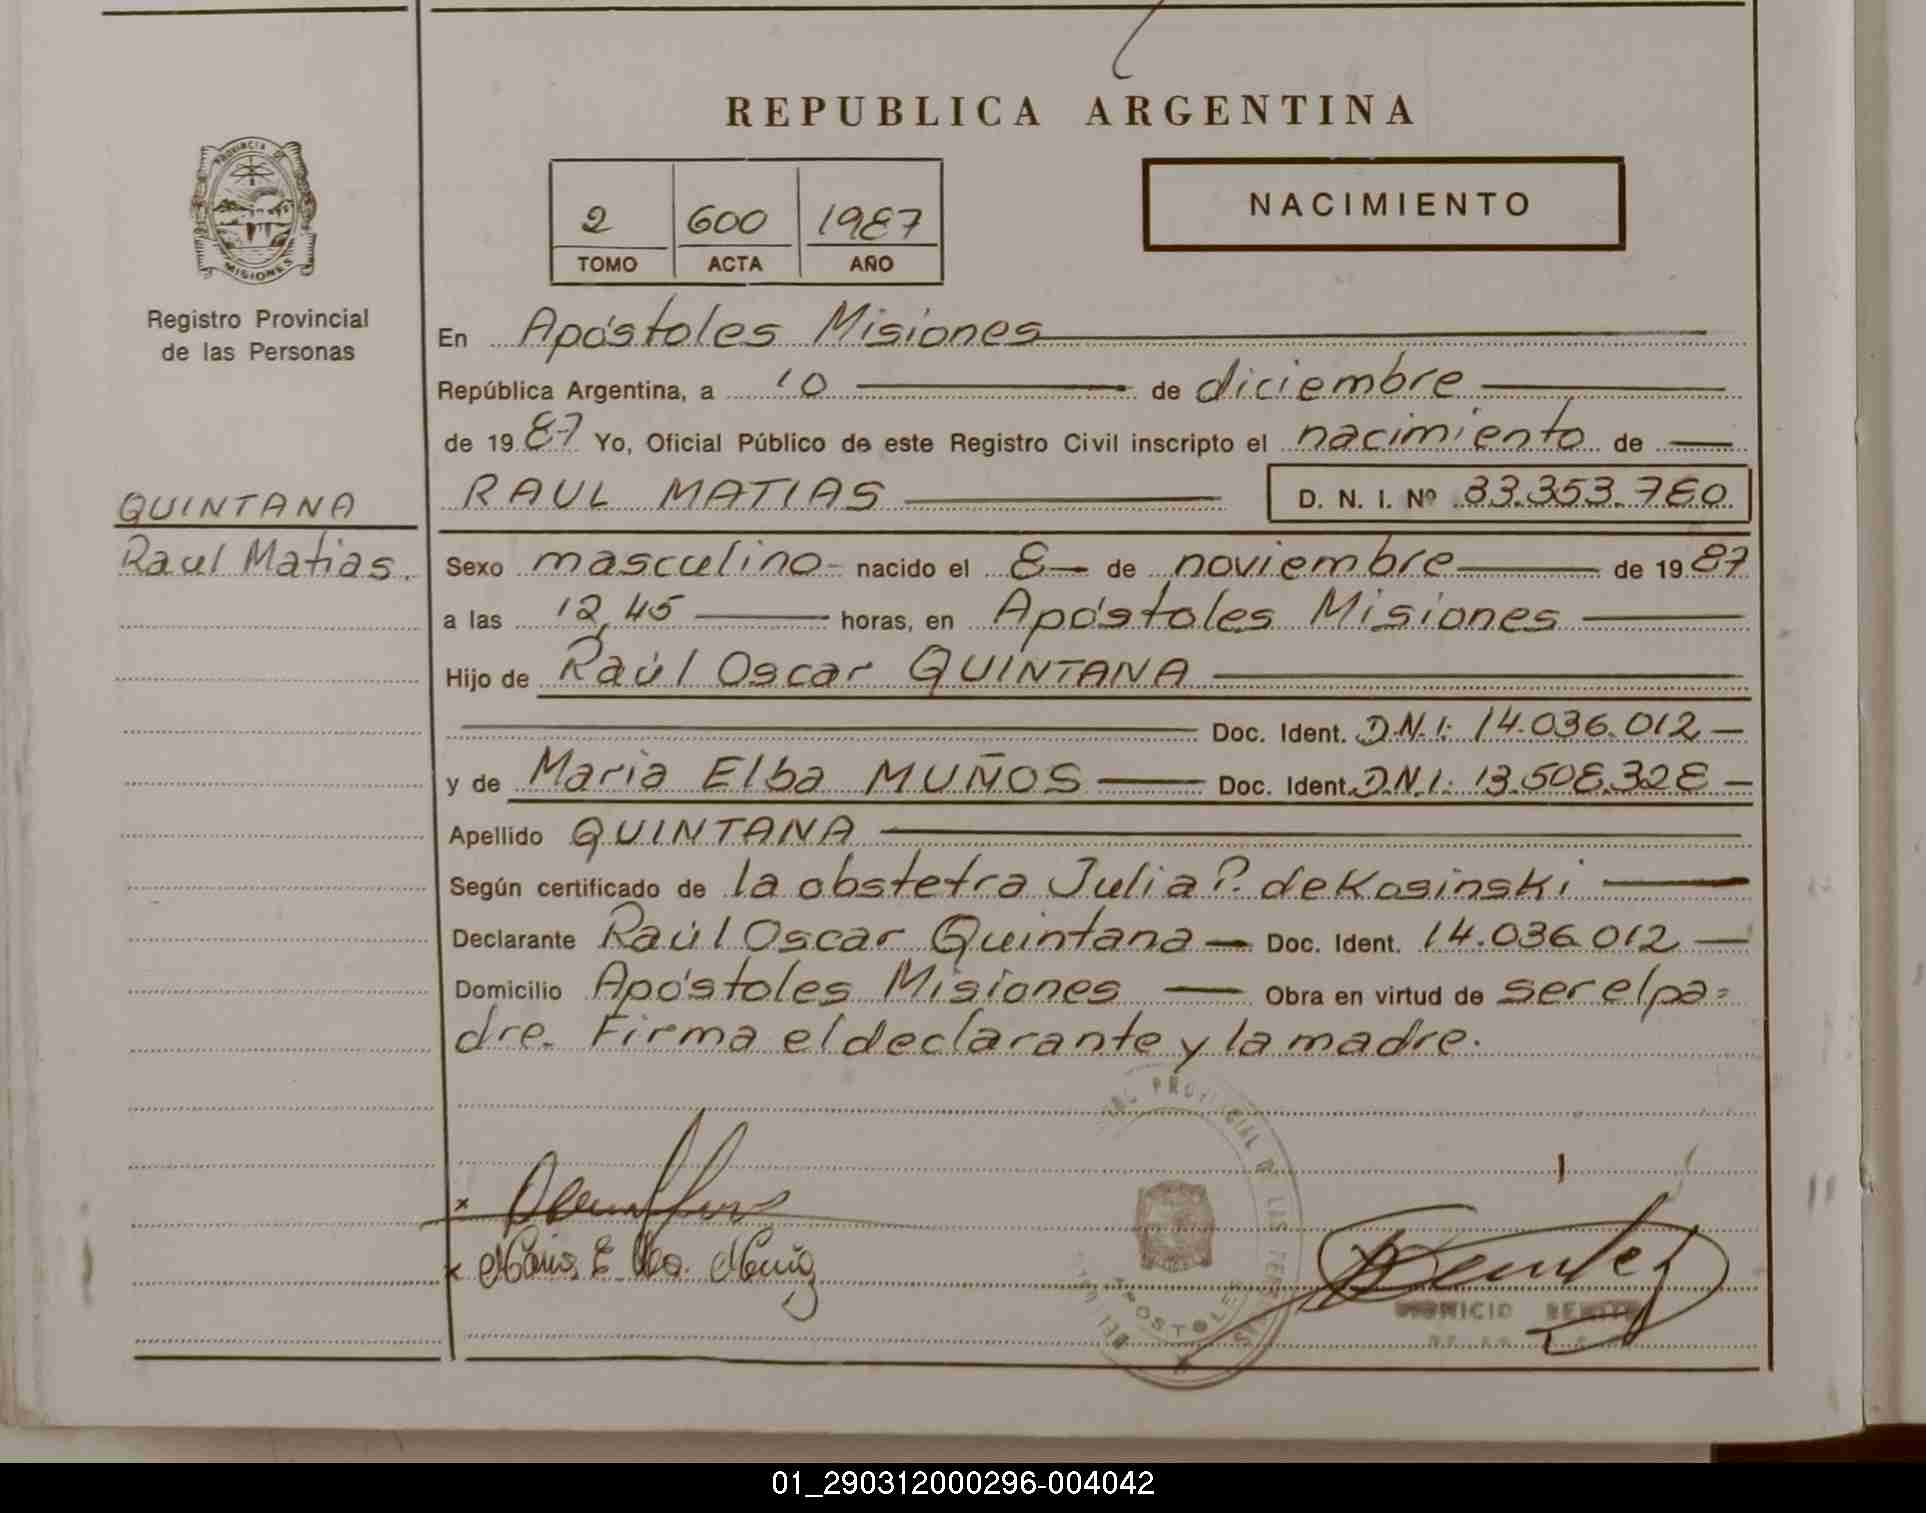 REPUBLICA ARGENTINA
PROVINCIA DE
MISIONES
Registro Provincial
de las Personas
2 600 1987
TOMO ACTA AÑO
NACIMIENTO
En Apóstoles Misiones
República Argentina, a 10 de diciembre
de 1987 Yo, Oficial Público de este Registro Civil inscripto el nacimiento de
QUINTANA
Raul Matias.
RAUL MATIAS D. N. I. Nº 33.353.780
Sexo masculino nacido el 8 de noviembre de 1987
a las 12,45 horas, en Apóstoles Misiones
Hijo de Raúl Oscar QUINTANA
Doc. Ident. D.N.I: 14.036.012
y de Maria Elba MUÑOS Doc. Ident. D.N.I: 13.508.328
Apellido QUINTANA
Según certificado de la obstetra Julia P. de Kosinski
Declarante Raúl Oscar Quintana Doc. Ident. 14.036.012
Domicilio Apóstoles Misiones Obra en virtud de ser el pa=
dre. Firma el declarante y la madre.
PROVINCIAL DE LAS PER
APOSTOLES
DIONICIO BENITEZ
01_290312000296-004042